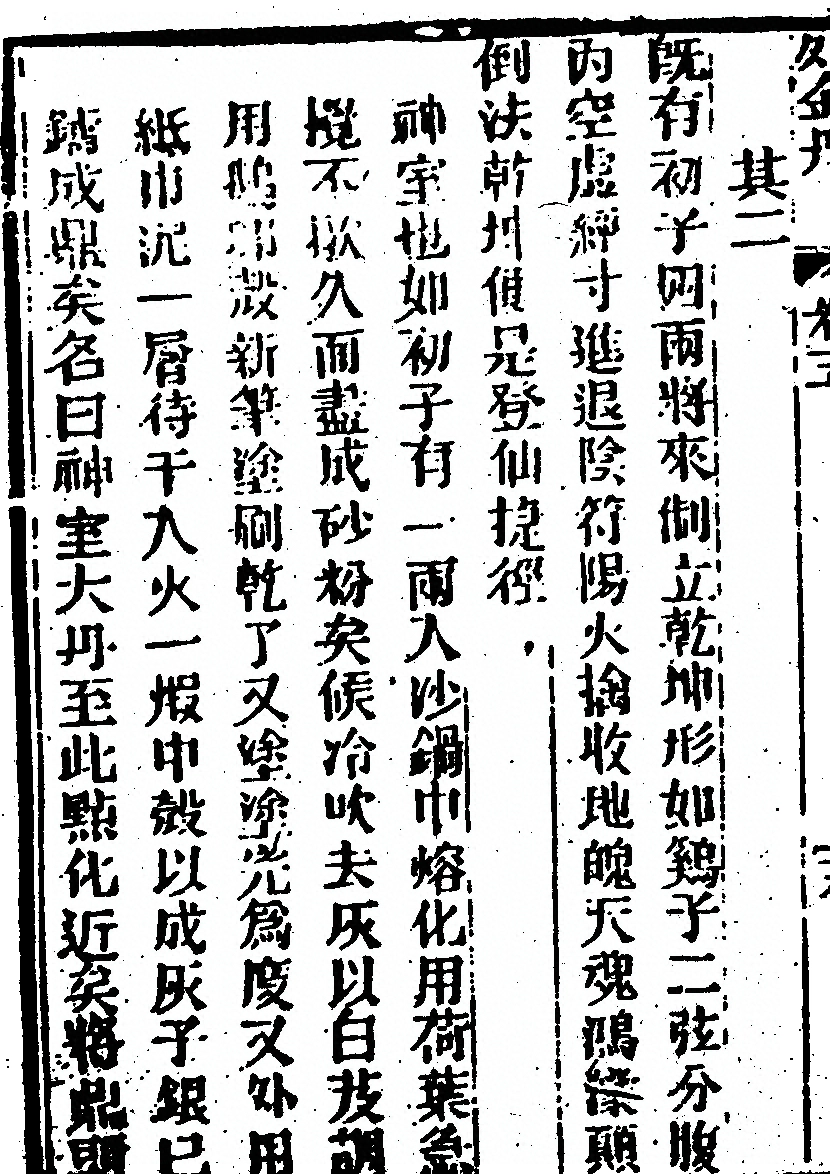 金丹 卷三
其二
既有初子四兩將來制立乾坤形如鷄子二弦分腹
內空虛經寸進退陰符陽火擒收地魄天魂鴻濛顛
倒法乾坤便是登仙捷徑
神室也如初子有一兩入沙鍋中熔化用荷葉急
攪不歇久而盡成砂粉矣候冷吹去灰以白芨葫
用鵝卵殼新筆塗刷乾了又塗塗光爲度又外用
紙巾泥一層待干入火一煆中殼以成灰子銀已
鑄成鼎矣名曰神室大丹至此點化近矣將鼎頭